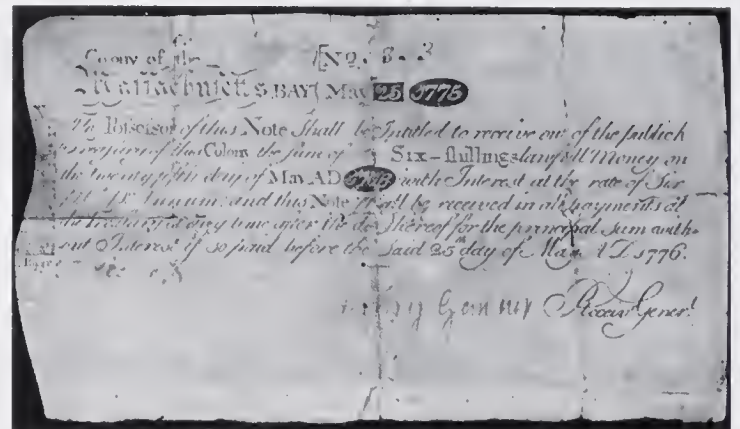 Colony of the [No. 8. 3
Massachusetts BAY{ May 25 1775
The Possessor of this Note Shall be Intitled to receive out of the publick
Treasury of this Colony the sum of Six-shillings lawfull Money on
the twenty fifth day of May AD with Interest at the rate of Six
Pr Ct Pr Annum and this Note shall be received in all payments at
the Treasury at any time after the date thereof for the principal Sum with-
out Interest if so paid before the Said 25th day of May A D 1776.
Receivr Generl